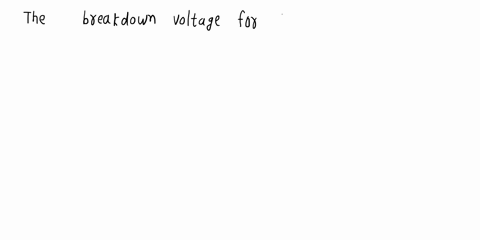 The breakdown voltage for